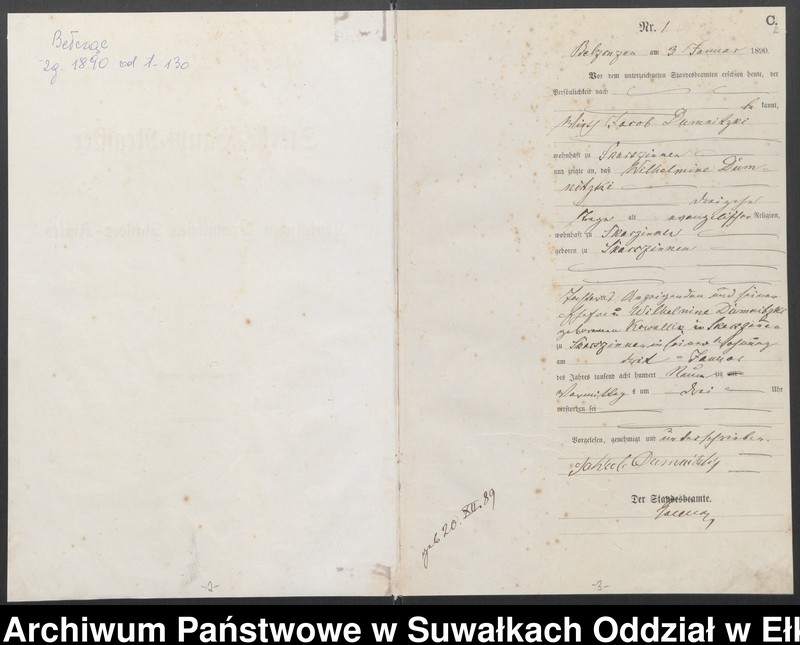 Bełcząc
zg. 1890 od 1-130
-2-
C.
2
Nr. 1
Belzonzen am 3 Januar 1890.
Vor dem unterzeichneten Standesbeamten erschien heute, der
Persönlichkeit nach
be kannt,
Jacob Dumnitzki
wohnhaft zu Skarszinnen
und zeigte an, daß Wilhelmine Dum-
nitzki
dreizehn
Tage alt evangelischer Religion,
wohnhaft zu Skarszinnen
geboren zu Skarszinnen
Anzeigenden und seiner
Ehefrau Wilhelmine Dumnitzki
geborenen Kowallik in Skarszinnen
zu Skarszinnen in seiner Wohnung
am drit Januar
des Jahres tausend acht hundert Neun zig
Vormittag s um drei Uhr
verstorben sei
Vorgelesen, genehmigt und unterschrieben.
Jakob Dumnitzky
Der Standesbeamte.
geb 20. XII. 89
-3-
Archiwum Państwowe w Suwałkach Oddział w Ełk